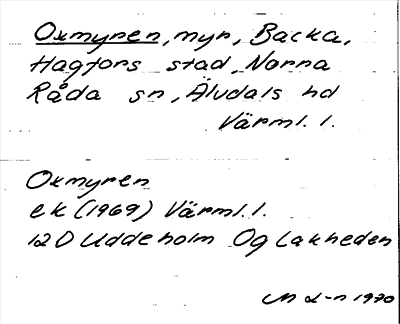 Oxmyren, myr, Backa,
Hagfors stad, Norra
Råda sn, Älvdals hd
Värml. l.
Oxmyren
ek (1969) Värml. l.
12D Uddeholm Og Lakheden
1970